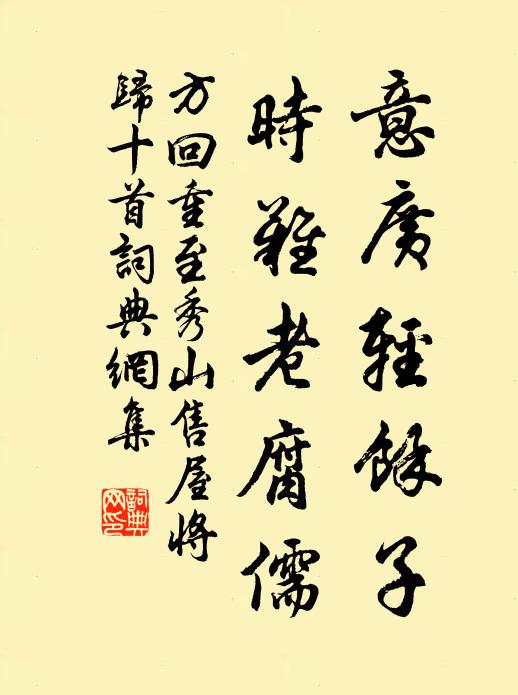 意廣輕餘子
時難老腐儒
方回重至秀山售屋將
歸十首詞典網集
詞典网印